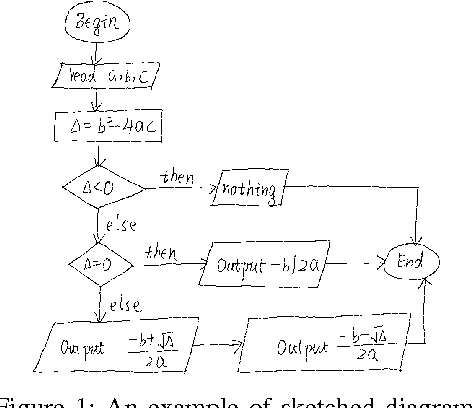 Begin
read a, b, c
Δ=b²-4ac
Δ<0
then
nothing
else
Δ=0
then
Output -b/2a
End
else
Output -b+√Δ/2a
Output -b-√Δ/2a
Figure 1: An example of sketched diagram